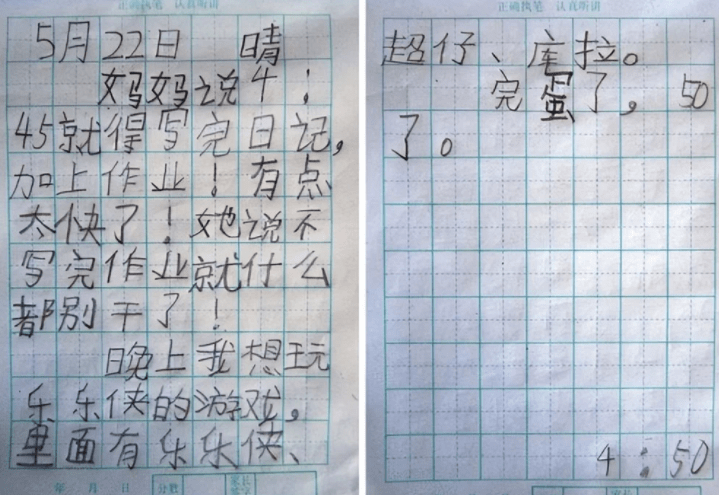 正确执笔 认真听讲
5月22日 晴
妈妈说4:
45就得写完日记,
加上作业!有点
太快了!她说不
写完作业就什么
都别干了!
晚上我想玩
乐乐侠的游戏,
里面有乐乐侠、
年 月 日 分数 家长
正确执笔 认真听讲
超仔、库拉。
完蛋了,50
了。
4:50